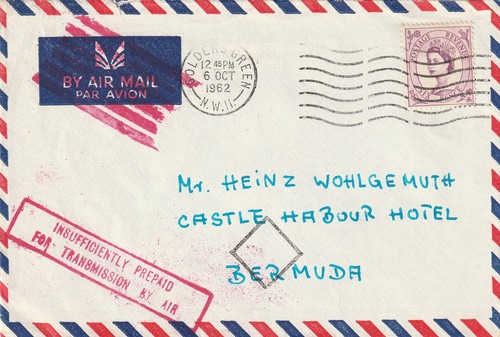 BY AIR MAIL
PAR AVION
GOLDERS GREEN
12 45PM
6 OCT
1962
N.W.11.
POSTAGE REVENUE
Mr. HEINZ WOHLGEMUTH
CASTLE HABOUR HOTEL
BERMUDA
INSUFFICIENTLY PREPAID
FOR TRANSMISSION BY AIR